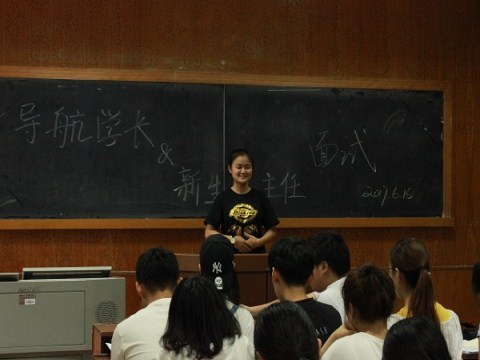 导航学长
&
新生 主任
面试
2017.6.15
NY